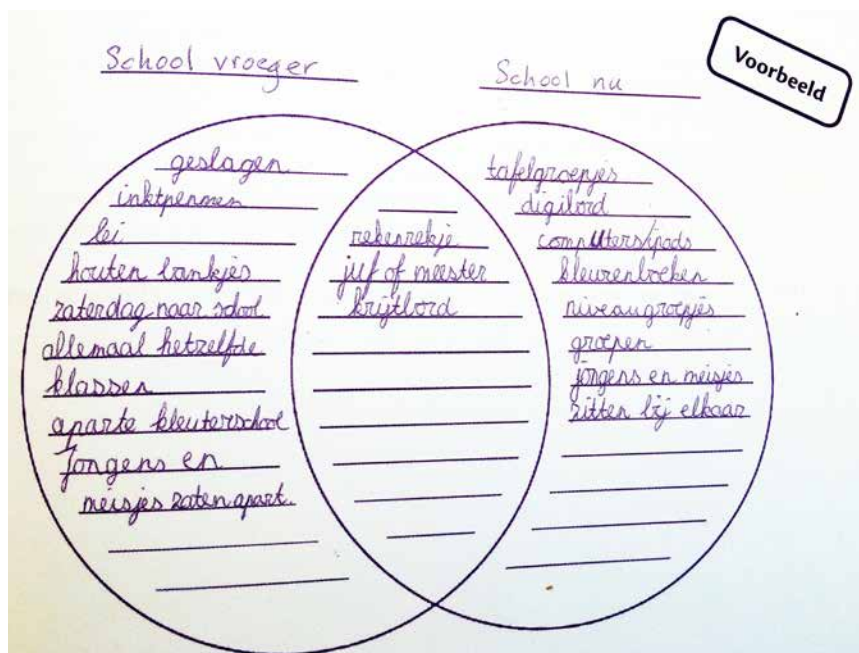 School vroeger
School nu
Voorbeeld
geslagen
inktpennen
lei
houten bankjes
zaterdag naar school
allemaal hetzelfde
klassen
aparte kleuterschool
Jongens en
meisjes zaten apart.
rekenrekje
juf of meester
krijtbord
tafelgroepjes
digibord
computers/ipads
kleurenboeken
niveaugroepjes
groepen
jongens en meisjes
zitten bij elkaar